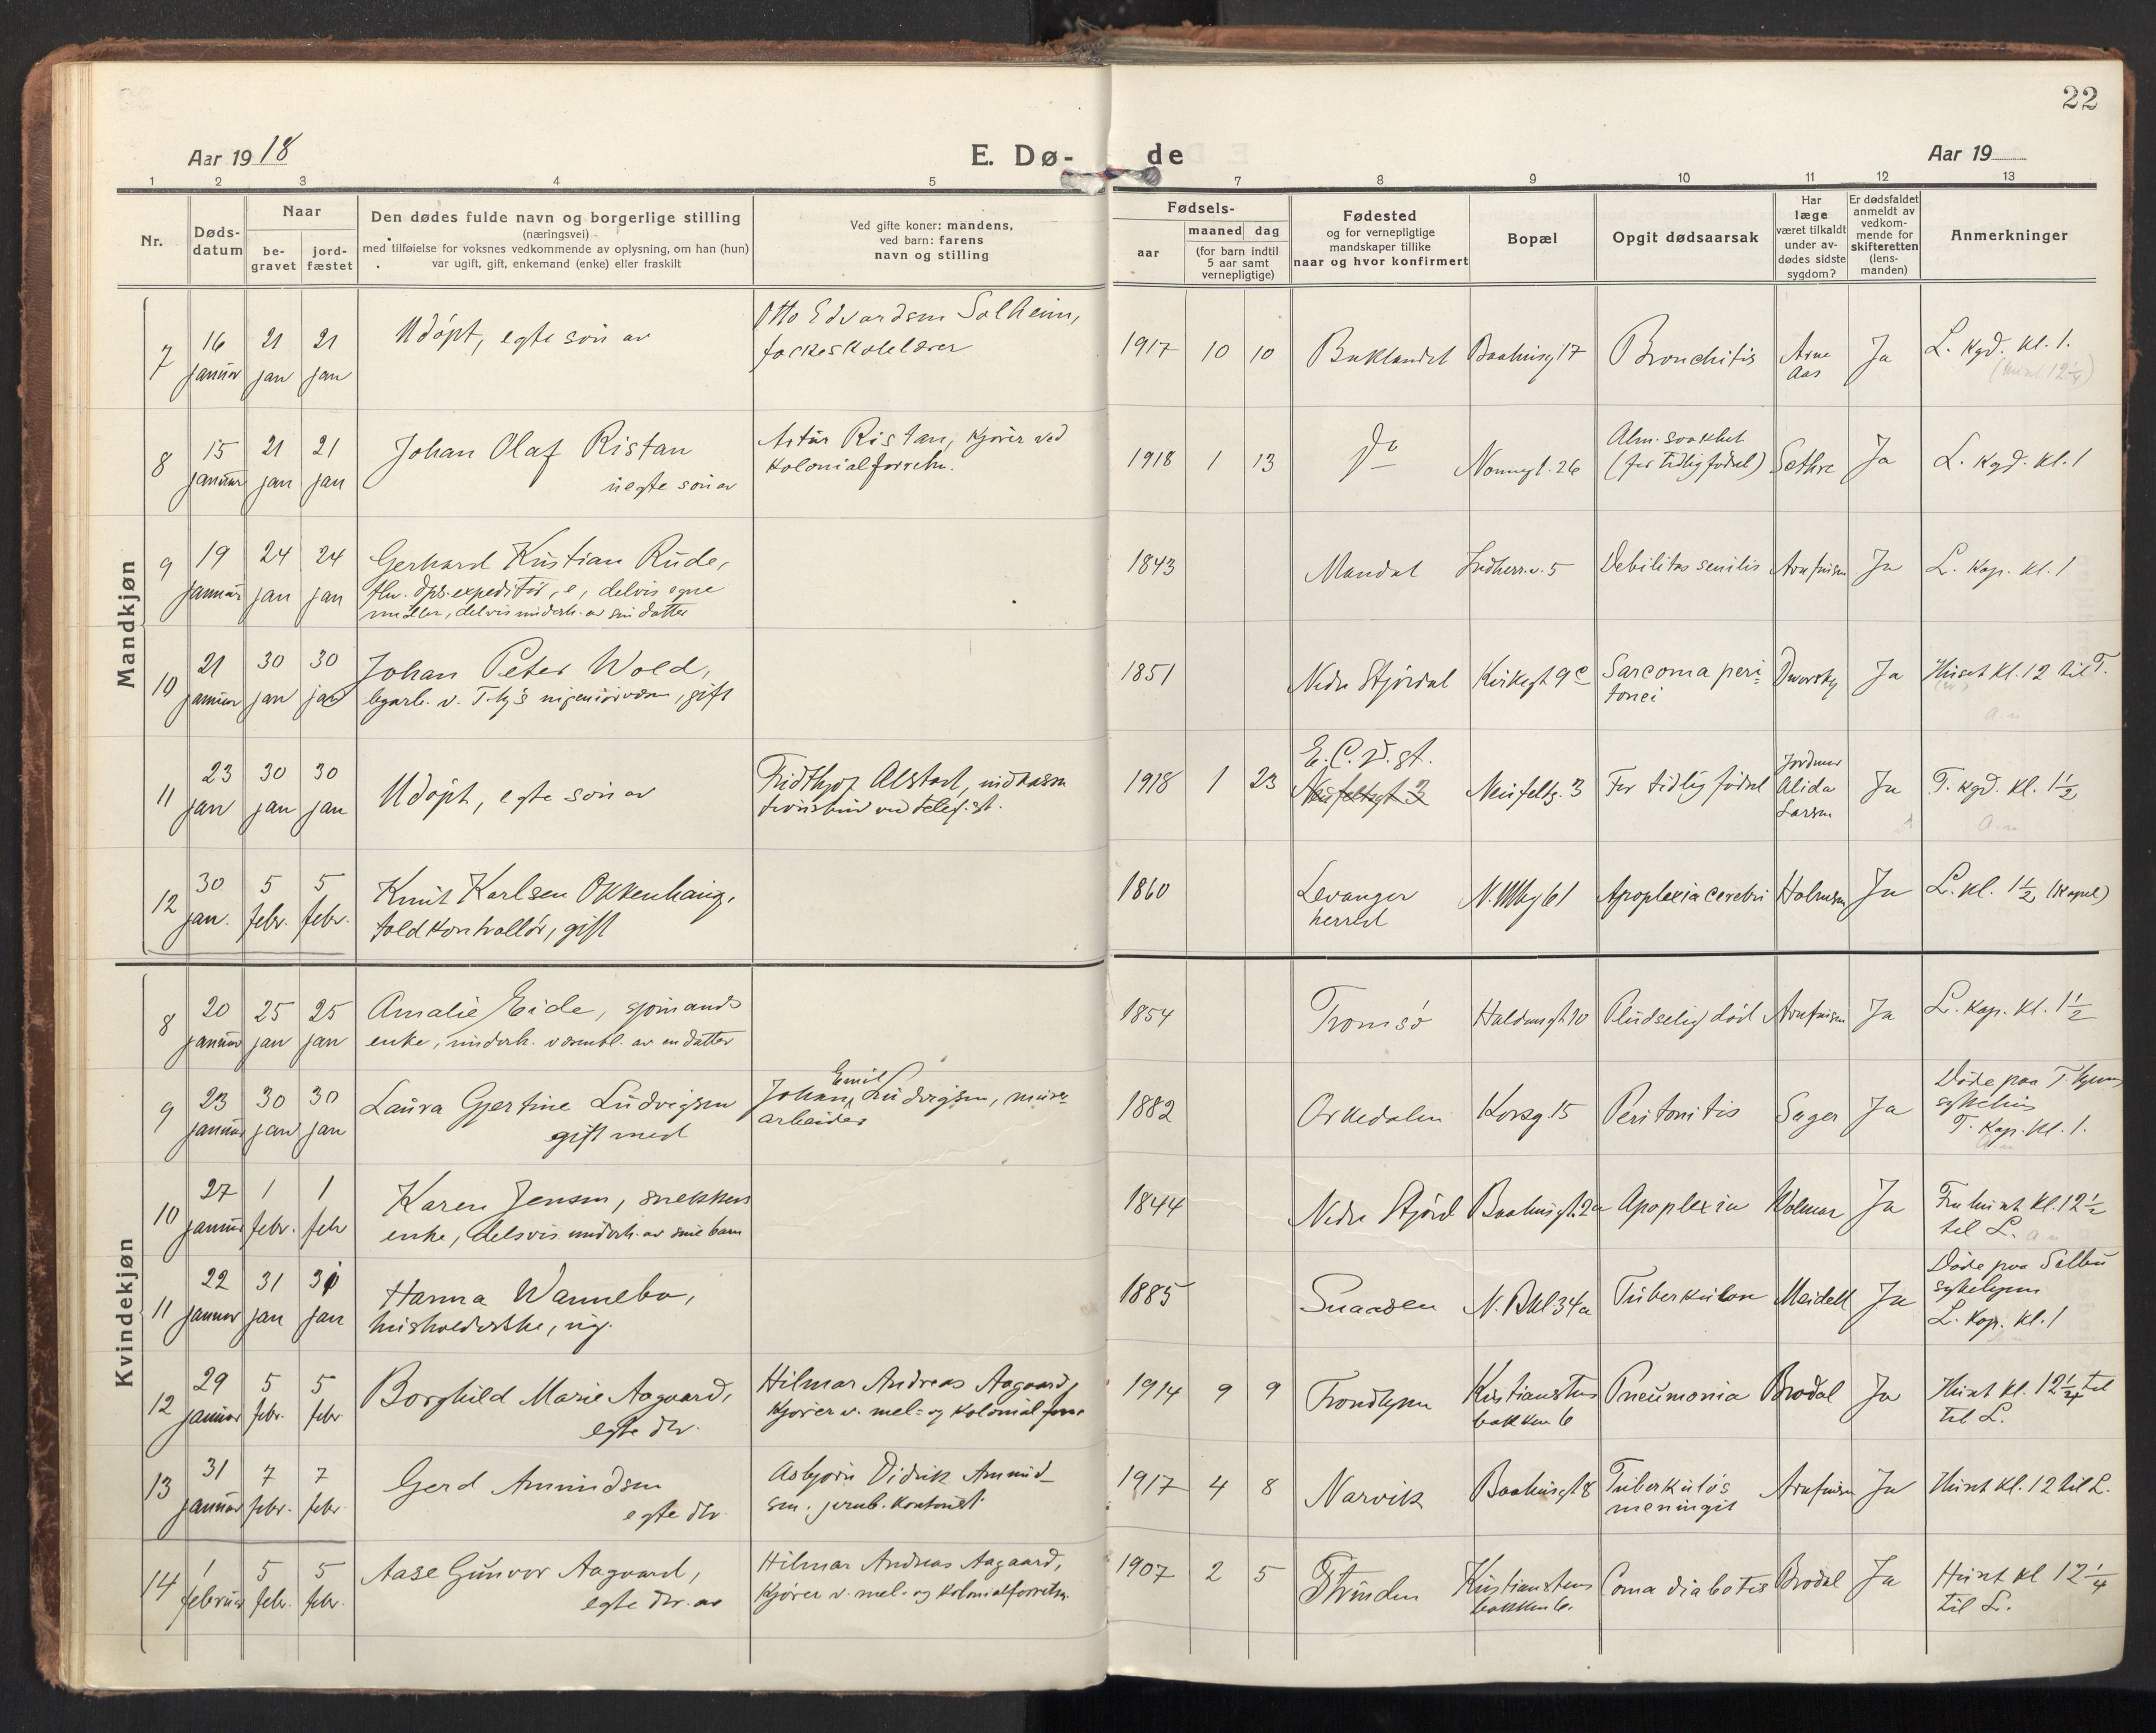 22
Aar 1918
E. Dø-
de
Aar 19
1 2 3 4 5 7 8 9 10 11 12 13
Nr.
Døds-
datum
Naar
be-
gravet
jord-
fæstet
Den dødes fulde navn og borgerlige stilling
(næringsvei)
med tilføielse for voksnes vedkommende av oplysning, om han (hun)
var ugift, gift, enkemand (enke) eller fraskilt
Ved gifte koner: mandens,
ved barn: farens
navn og stilling
Fødsels-
aar
maaned dag
(for barn indtil
5 aar samt
vernepligtige)
Fødested
og for vernepligtige
mandskaper tillike
naar og hvor konfirmert
Bopæl
Opgit dødsaarsak
Har
læge
været tilkaldt
under av-
dødes sidste
sygdom?
Er dødsfaldet
anmeldt av
vedkom-
mende for
skifteretten
(lens-
manden)
Anmerkninger
Mandkjøn
7
16
januar
21
jan
21
jan
Udøpt, egte søn av
Otto Edvardsen Solheim,
1917 10 10
Baklandet
Baahusg 17
Bronchitis
Arne
Aas
Ja
L. kgd. kl. 1.
8
15
januar
21
jan
21
jan
Johan Olaf Ristan
uegte søn av
Artur Ristan, kjører ved
kolonialforretn.
1918 1 13
Do
Nonnegt. 26
Alm. svakhet
(for tidlig fødsel)
Sethre
Ja
L. kgd. kl. 1
9
19
januar
24
jan
24
jan
Gerhard Kristian Rude,
fhv. dps. expeditør, e, delvis egne
midler, delvis underh. av sin datter
1843
Mandal
Indherr.v. 5
Debilitas senilis
Arnfinsen
Ja
L. kap. kl. 1
10
21
januar
30
jan
30
jan
Johan Peter Wold,
1851
Nedre Stjørdal
Kirkegt 9c
Sarcoma peri=
tonei
Ja
Huset kl. 12 til T.
11
23
jan
30
jan
30
jan
Udøpt, egte søn av
Fridthjof Alstad,
1918 1 23
E. C. D. st.
Neufeltsgt 3
Neufeltg. 3
For tidlig fødsel
Jordmor
Alida
Larsen
Ja
T. kgd. kl. 1½
12
30
jan.
5
febr.
5
febr.
Knut Karlsen Okkenhaug,
toldkontrollør, gift
1860
Levanger
herred
N. Mllbg 61
Apoplexia cerebri
Holmsen
Ja
L. kl. 1½ (Kapel)
Kvindekjøn
8
20
januar
25
jan
25
jan
Amalie Eide, sjømands
enke, underh. væsentl. av en datter
1854
Tromsø
Haldensgt. 10
Pludselig død
Arnfinsen
Ja
L. kap. kl. 1½
9
23
januar
30
jan
30
jan
Laura Gjertine Ludvigsen
gift med
Emil
Johan Ludvigsen, murer-
arbeider
1882
Orkedalen
Korsg. 15
Peritonitis
Sager
Ja
Døde paa T.hjems
sykehus
T. Kap. kl. 1.
10
27
januar
1
febr.
1
febr
Karen Jensen, snekkers
enke, delsvis underh. av sine barn
1844
Nedre Stjørd
Baahusgt. 2a
Apoplexia
Wolmar
Ja
Fra huset kl. 12½
til L.
11
22
januar
31
jan
31
jan
Hanna Wannebo,
husholderske, ug.
1885
Snaasen
N. Bkl 34a
Tuberkulose
Meidell
Ja
Døde paa Selbu
sykehjem
L. Kap. kl. 1
12
29
januar
5
febr.
5
febr
Borghild Marie Aagaard,
egte dtr.
Hilmar Andreas Aagaard,
kjører v. mel- og kolonialforre
1914 9 9
Trondhjem
Kristianstens
bakken 6
Pneumonia
Brodal
Ja
Huset kl. 12¼ til
til L.
13
31
januar
7
febr.
7
febr.
Gerd Amundsen
egte dtr.
Asbjørn Didrik Amund-
sen. jernb. kontorist
1917 4 8
Narvik
Baahusgt 8
Tuberkuløs
meningit
Arnfinsen
Ja
Huset kl. 12 til L.
14
1
februar
5
febr.
5
febr.
Aase Gunvor Aagaard,
egte dtr. av
Hilmar Andreas Aagaard,
kjører v. mel- og kolonialforretn.
1907 2 5
Strinden
Kristianstens
bakken 6.
Coma diabetis
Brodal
Ja
Huset kl 12¼
til L.